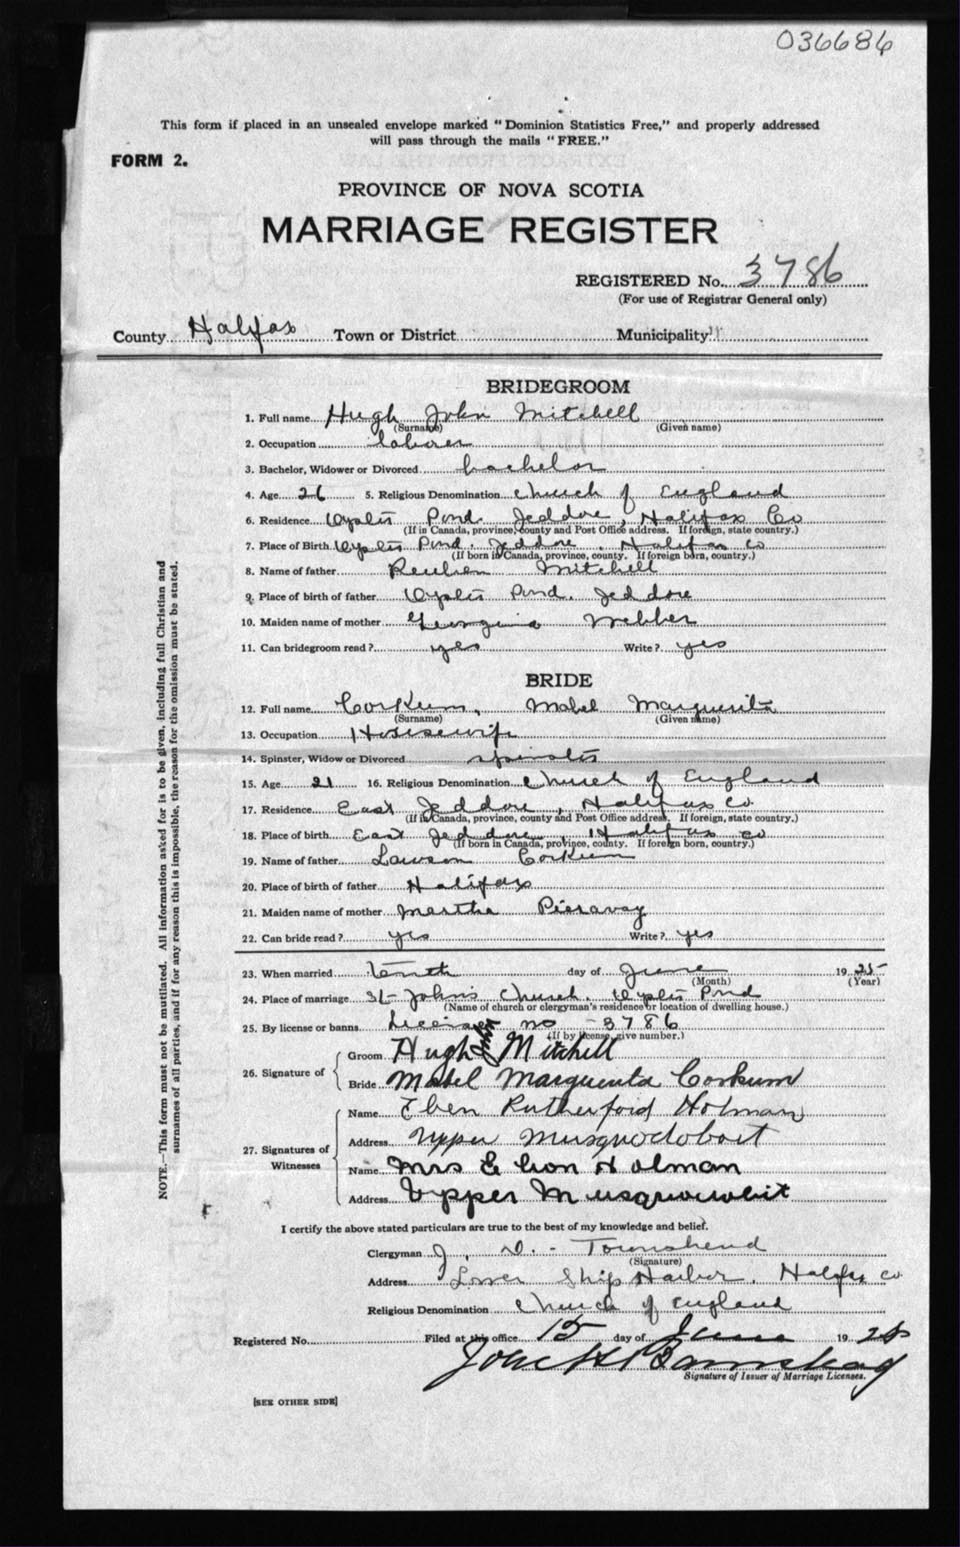 036686
This form if placed in an unsealed envelope marked "Dominion Statistics Free," and properly addressed
will pass through the mails "FREE."
FORM 2.
PROVINCE OF NOVA SCOTIA
MARRIAGE REGISTER
REGISTERED No. 3786
(For use of Registrar General only)
County Halifax Town or District Municipality
BRIDEGROOM
1. Full name Hugh John Mitchell
(Surname) (Given name)
2. Occupation laborer
3. Bachelor, Widower or Divorced bachelor
4. Age 26 5. Religious Denomination Church of England
6. Residence Oyster Pond. Jeddore, Halifax Co
(If in Canada, province, county and Post Office address. If foreign, state country.)
7. Place of Birth Oyster Pond. Jeddore Halifax co
(If born in Canada, province, county. If foreign born, country.)
8. Name of father Reuben Mitchell
9. Place of birth of father Oyster Pond. Jeddore
10. Maiden name of mother Georgina Webber
11. Can bridegroom read? yes Write? yes
BRIDE
12. Full name Corkum, Mabel Marguerita
(Surname) (Given name)
13. Occupation Housewife
14. Spinster, Widow or Divorced spinster
15. Age 21 16. Religious Denomination Church of England
17. Residence East Jeddore, Halifax co
(If in Canada, province, county and Post Office address. If foreign, state country.)
18. Place of birth East Jeddore, Halifax co
(If born in Canada, province, county. If foreign born, country.)
19. Name of father Lawson Corkum
20. Place of birth of father Halifax
21. Maiden name of mother Martha
22. Can bride read? yes Write? yes
23. When married tenth day of June 1925
(Month) (Year)
24. Place of marriage St John's Church. Oyster Pond
(Name of church or clergyman's residence or location of dwelling house.)
25. By license or banns License no 3786
(If by license, give number.)
26. Signature of
Groom Hugh John Mitchell
Bride Mabel Marguerita Corkum
27. Signatures of Witnesses
Name Eben Rutherford Holman
Address Upper Musquodoboit
Name Mrs E Holman
Address Upper
I certify the above stated particulars are true to the best of my knowledge and belief.
Clergyman J. V. Townshend
(Signature)
Address Lower Ship Harbor, Halifax co
Religious Denomination Church of England
Registered No. Filed at this office 15 day of June 1925
Signature of Issuer of Marriage Licenses.
[SEE OTHER SIDE]
NOTE.—This form must not be mutilated. All information asked for is to be given, including full Christian and
surnames of all parties, and if for any reason this is impossible, the reason for the omission must be stated.